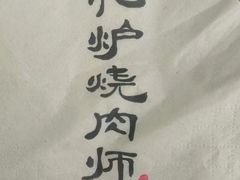 炉烧肉师